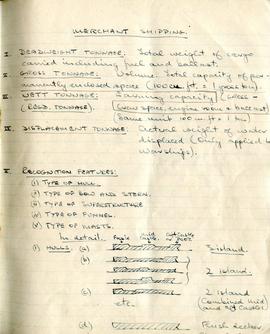 MERCHANT SHIPPING.
I. DEADWEIGHT TONNAGE: Total weight of cargo
carried including fuel and ballast.
II. GROSS TONNAGE: Volume. Total capacity of per-
manently enclosed space (100 cu. ft. = 1 gross ton).
III. NETT TONNAGE: Earning capacity (Gross -
(REGD. TONNAGE). (crew space, engine room & ballast)
(Same unit 100 cu. ft = 1 ton)
IV. DISPLACEMENT TONNAGE: Actual weight of water
displaced (Only applied to
warships).
V. RECOGNITION FEATURES:
(i) TYPE OF HULL.
(ii) TYPE OF BOW AND STERN.
(iii) TYPE OF SUPERSTRUCTURE
(iv) TYPE OF FUNNEL.
(v) TYPE OF MASTS.
In detail.
(i) HULLS (a) 3 island.
(b) 2 Island.
(c) 2 island
etc. (Combined mid
(d) Flush decker.